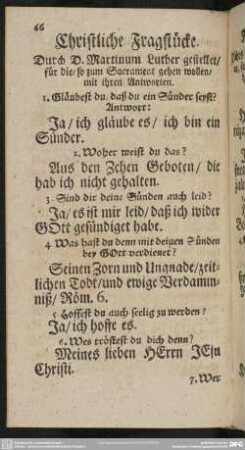 66
Christliche Fragstücke.
Durch D. Martinum Luther gestellet/
für die/ so zum Sacrament gehen wollen/
mit ihren Antworten.
1. Gläubest du, daß du ein Sünder seyst?
Antwort:
Ja/ ich gläube es/ ich bin ein
Sünder.
2. Woher weist du das?
Aus den Zehen Geboten/ die
hab ich nicht gehalten.
3. Sind dir deine Sünden auch leid?
Ja/ es ist mir leid/ daß ich wider
GOtt gesündiget habe.
4 Was hast du denn mit deinen Sünden
bey GOtt verdienet?
Seinen Zorn und Ungnade/ zeit-
lichen Todt/ und ewige Verdamm-
niß/ Röm. 6.
5 Hoffest du auch seelig zu werden?
Ja/ ich hoffe es.
6. Wes tröstest du dich denn?
Meines lieben HErrn JEsu
Christi.
7. Wer